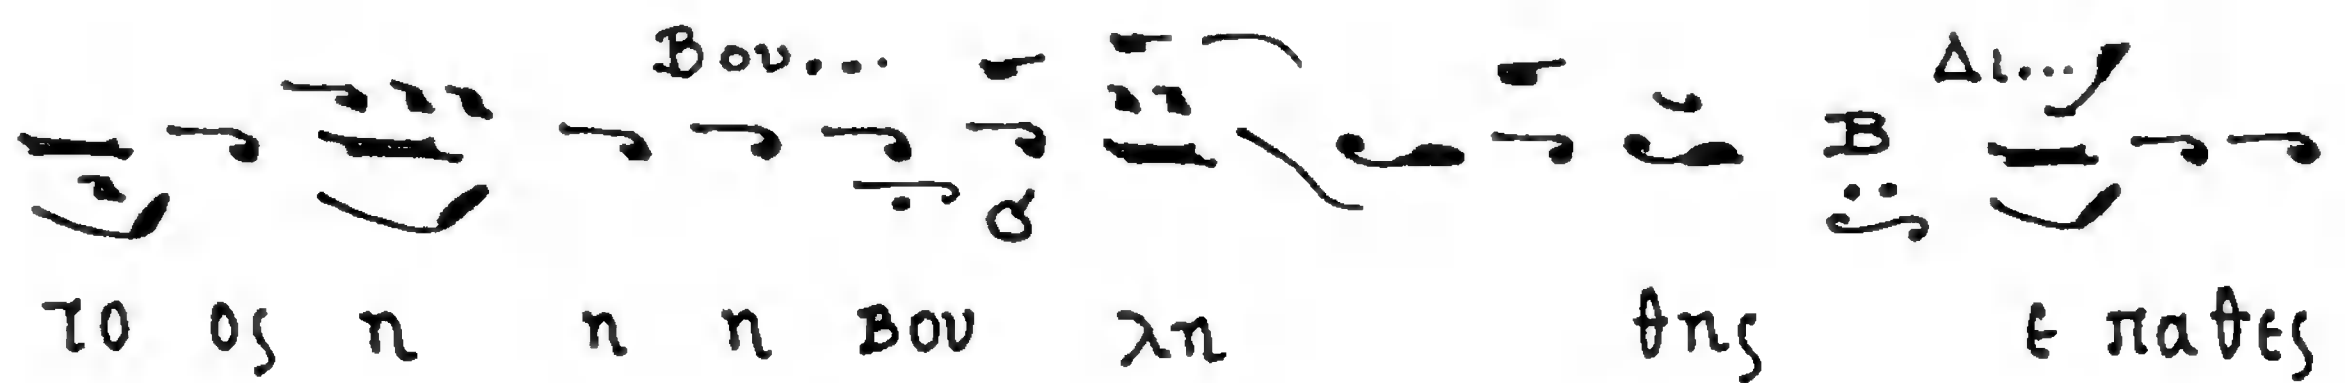 Βου... Δι...
Β
το ος η η η Βου λη θης ε πα θες